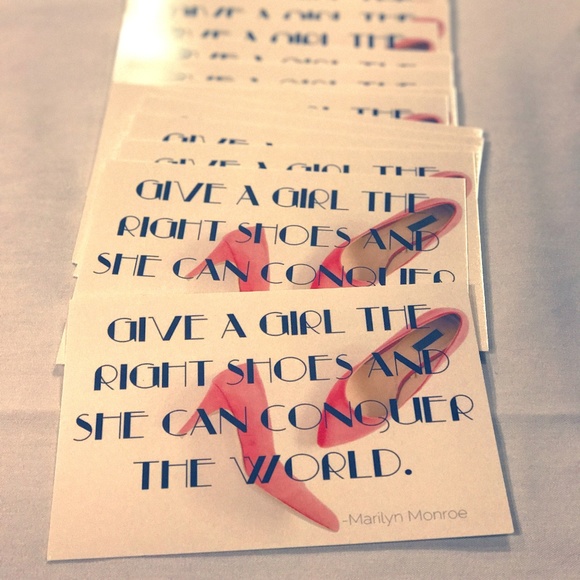 GIVE A GIRL THE
GIVE A GIRL THE
RIGHT SHOES AND
SHE CAN CONQUER
GIVE A GIRL THE
RIGHT SHOES AND
SHE CAN CONQUER
THE WORLD.
-Marilyn Monroe